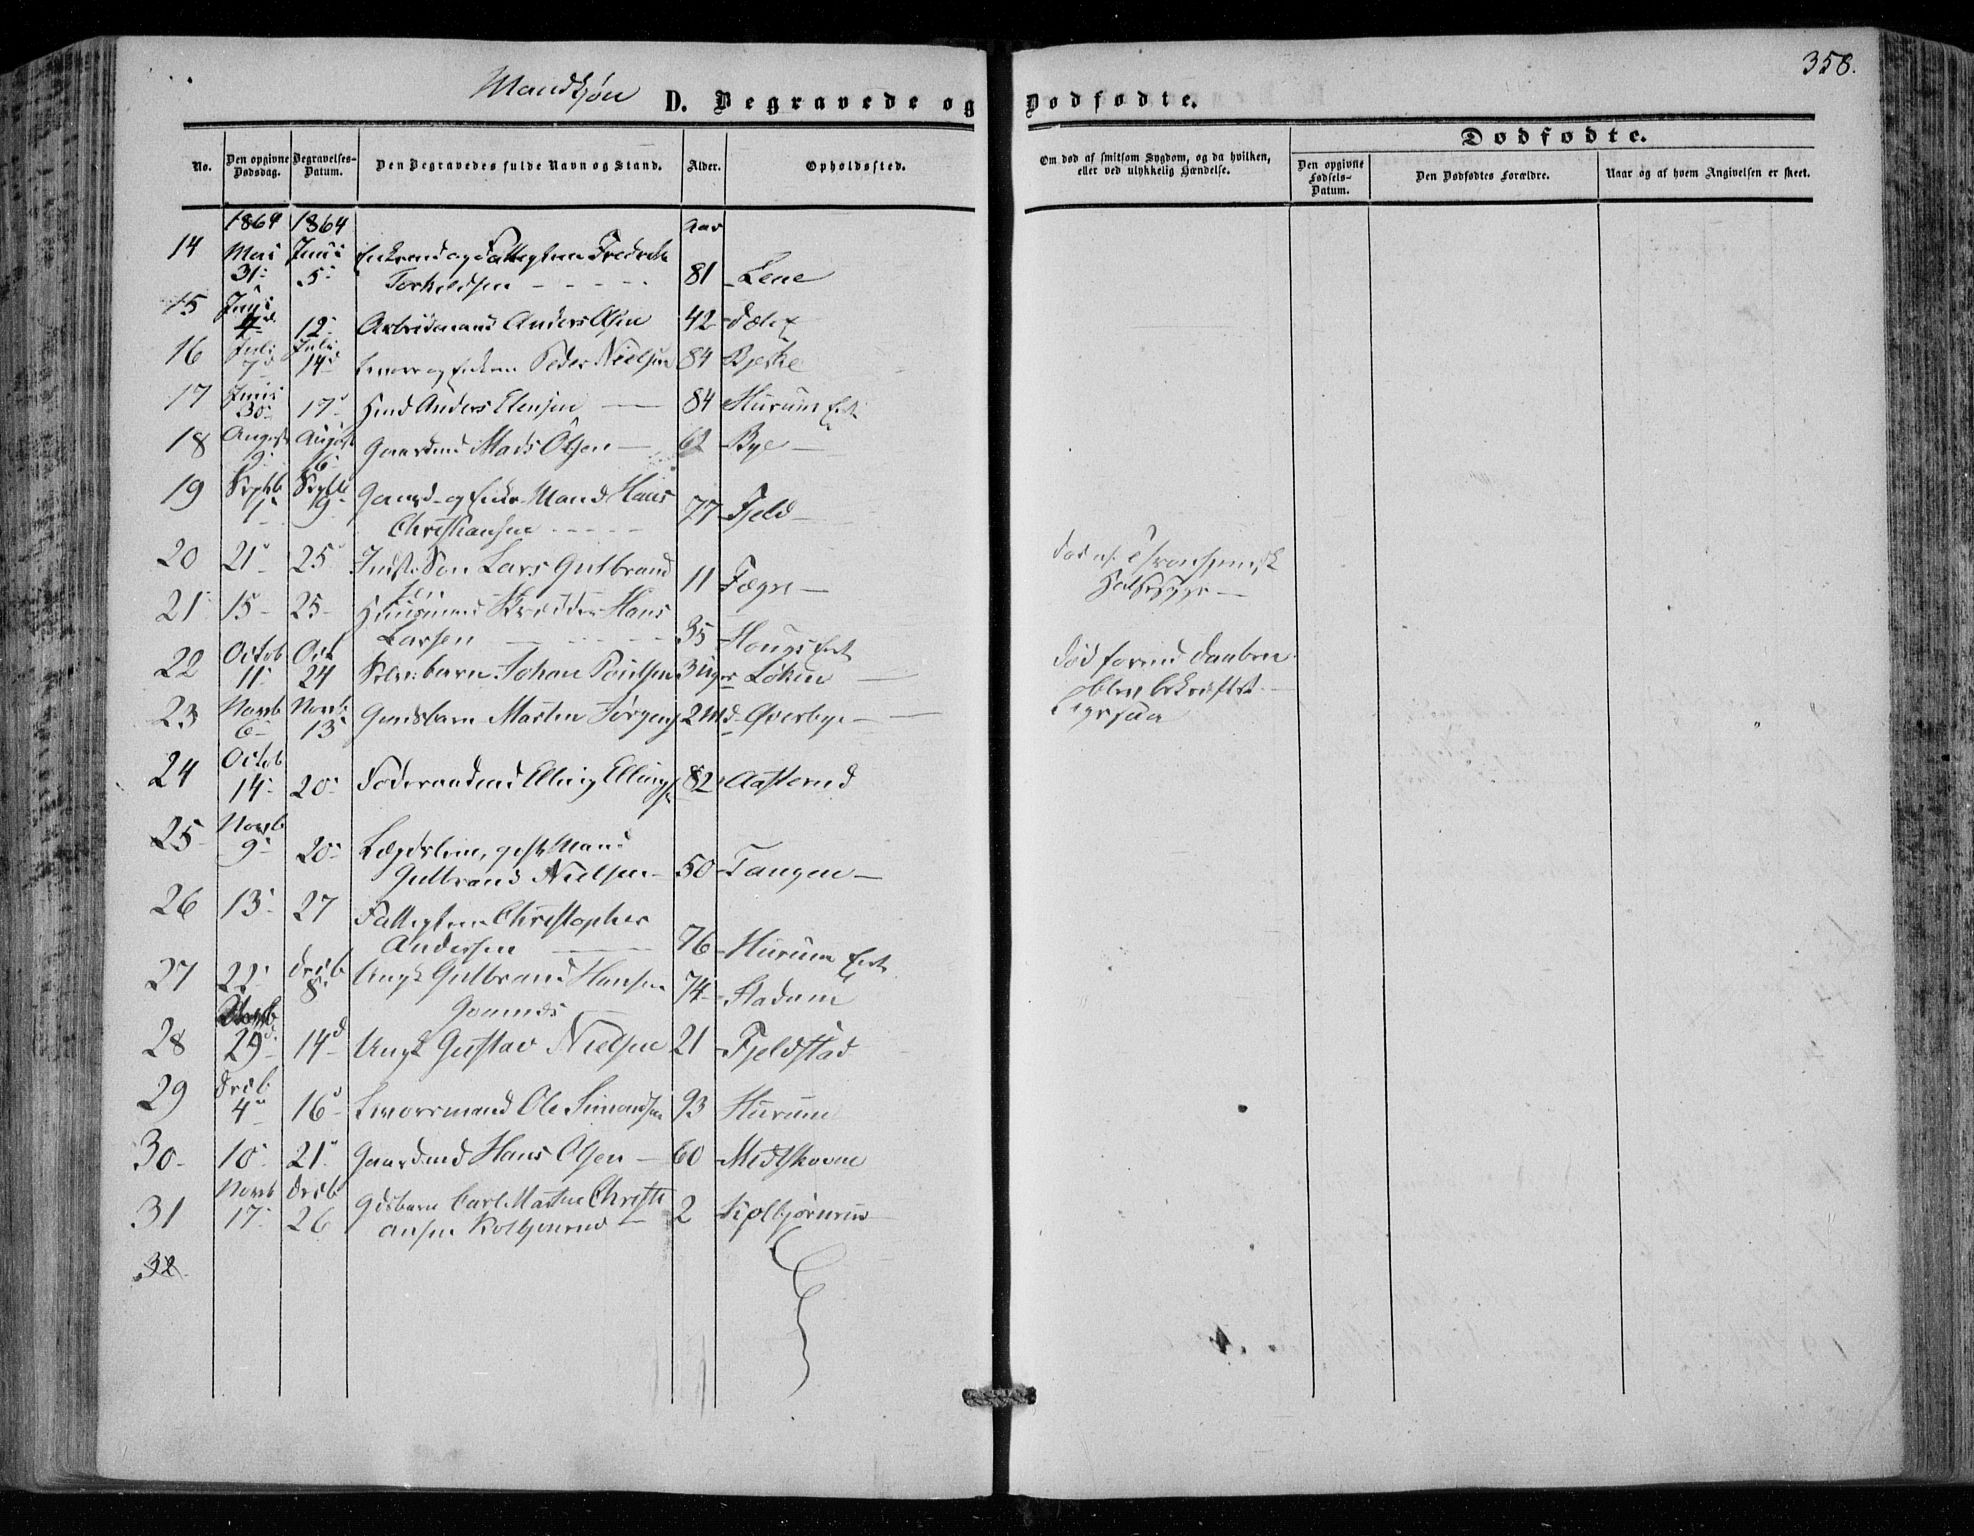 358.
Mandkjøn D. Begravede og Dødfødte.
Dødfødte.
No. Den opgivne Dødsdag. Begravelses-Datum. Den Begravedes fulde Navn og Stand. Alder. Opholdssted. Om død af smitsom Sygdom, og da hvilken, eller ved ulykkelig Hændelse. Den opgivne Fødsels-Datum. Den Dødfødtes Forældre. Naar og af hvem Angivelsen er skeet.
1864 1864 Aar
14 Mai Juni Enkemd og Fattigtem Fredrik
31 5 Torkildsen 81 Lene
15 Juni
4 12 Arbeidsmand Anders Olsen 42
16 Juli Juli
7 14 Peder Nielsen 84 Bjerke
17 Juni
30 17 Anders Elensen 84 Hurum
18 August August Gaardmd Mads Olsen 62 Bye
9 16
19 Septb Septb Gaard- og Enke-Mand Hans
1 9 Christiansen 77 Fjeld
20 21 25 Inst. Søn Lars Gulbrand
sen 11 Fægre
død af
Halssyge
21 15 25 Huusmand Skrædder Hans
Larsen 35 Hougs
22 Octob Oct
11 24 barn Johan Poulsen 3 Uger Løken
død forend Daaben
blev bekræftet
23 Novb Novb
6 13 Gaardsbarn Martin Jørgens 2 Md Overbye
24 Octob
14 20 Føderaadsmd Elling Ellings 82 Aasterud
25 Novb
9 20 Lægdslem, gift Mand
Gulbrand Nielsen 50 Tangen
26 13 27 Fattigtem Christopher
Andersen 76 Hurum
27 22 Decb
8 Ungk Gulbrand Hansen 74 Stadum
28 Novb
29 14 Ungk Gustav Nielsen 21 Fjeldstad
29 Decb
4 16 Ole Simonsen 93 Hurum
30 10 21 Gaardmd Hans Olsen 60 Midtskovne
31 Novb Decb Gdsbarn Carl Martin Christi
17 26 ansen Kolbjønrud 2 Kolbjørnrud
32